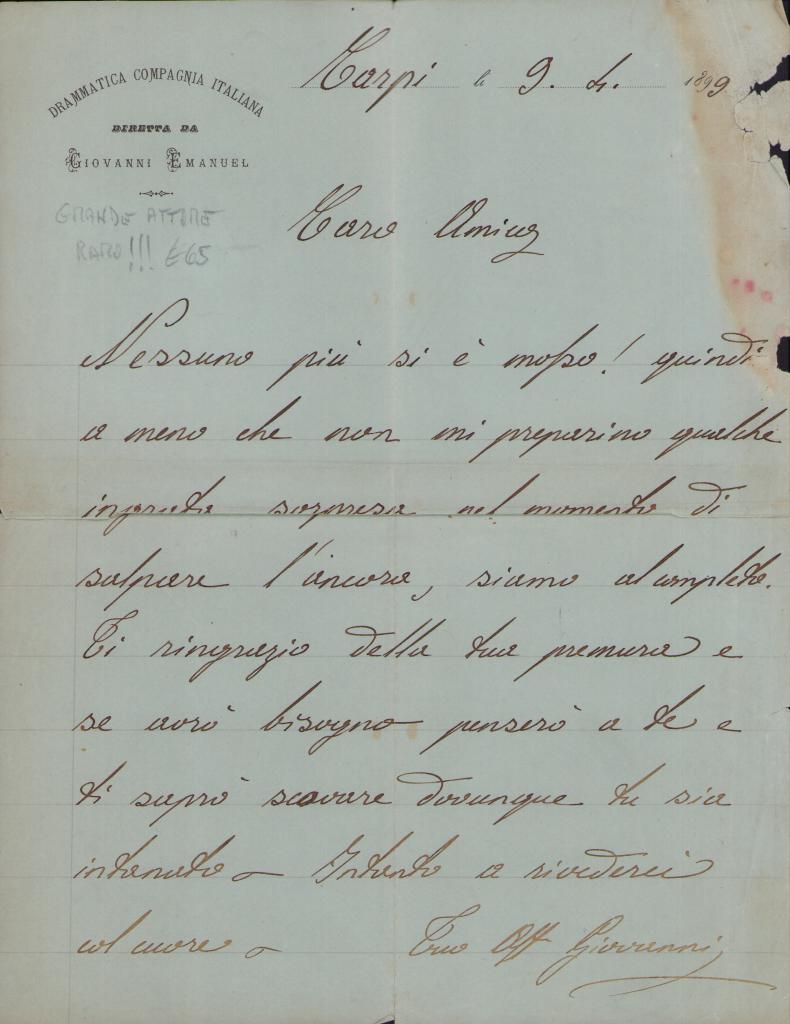 DRAMMATICA COMPAGNIA ITALIANA
DIRETTA DA
GIOVANNI EMANUEL
Carpi li 9. 4. 1899
GRANDE ATTORE
RARO!!! £65
Caro Amico
Nessuno più si è mosso! quindi
a meno che non mi preparino qualche
ingrata sorpresa nel momento di
salpare l'àncora, siamo al completo.
Ti ringrazio della tua premura e
se avrò bisogno penserò a te e
ti saprò scovare dovunque tu sia
intanato – Intanto a rivederci
col cuore –
Tuo Aff Giovanni